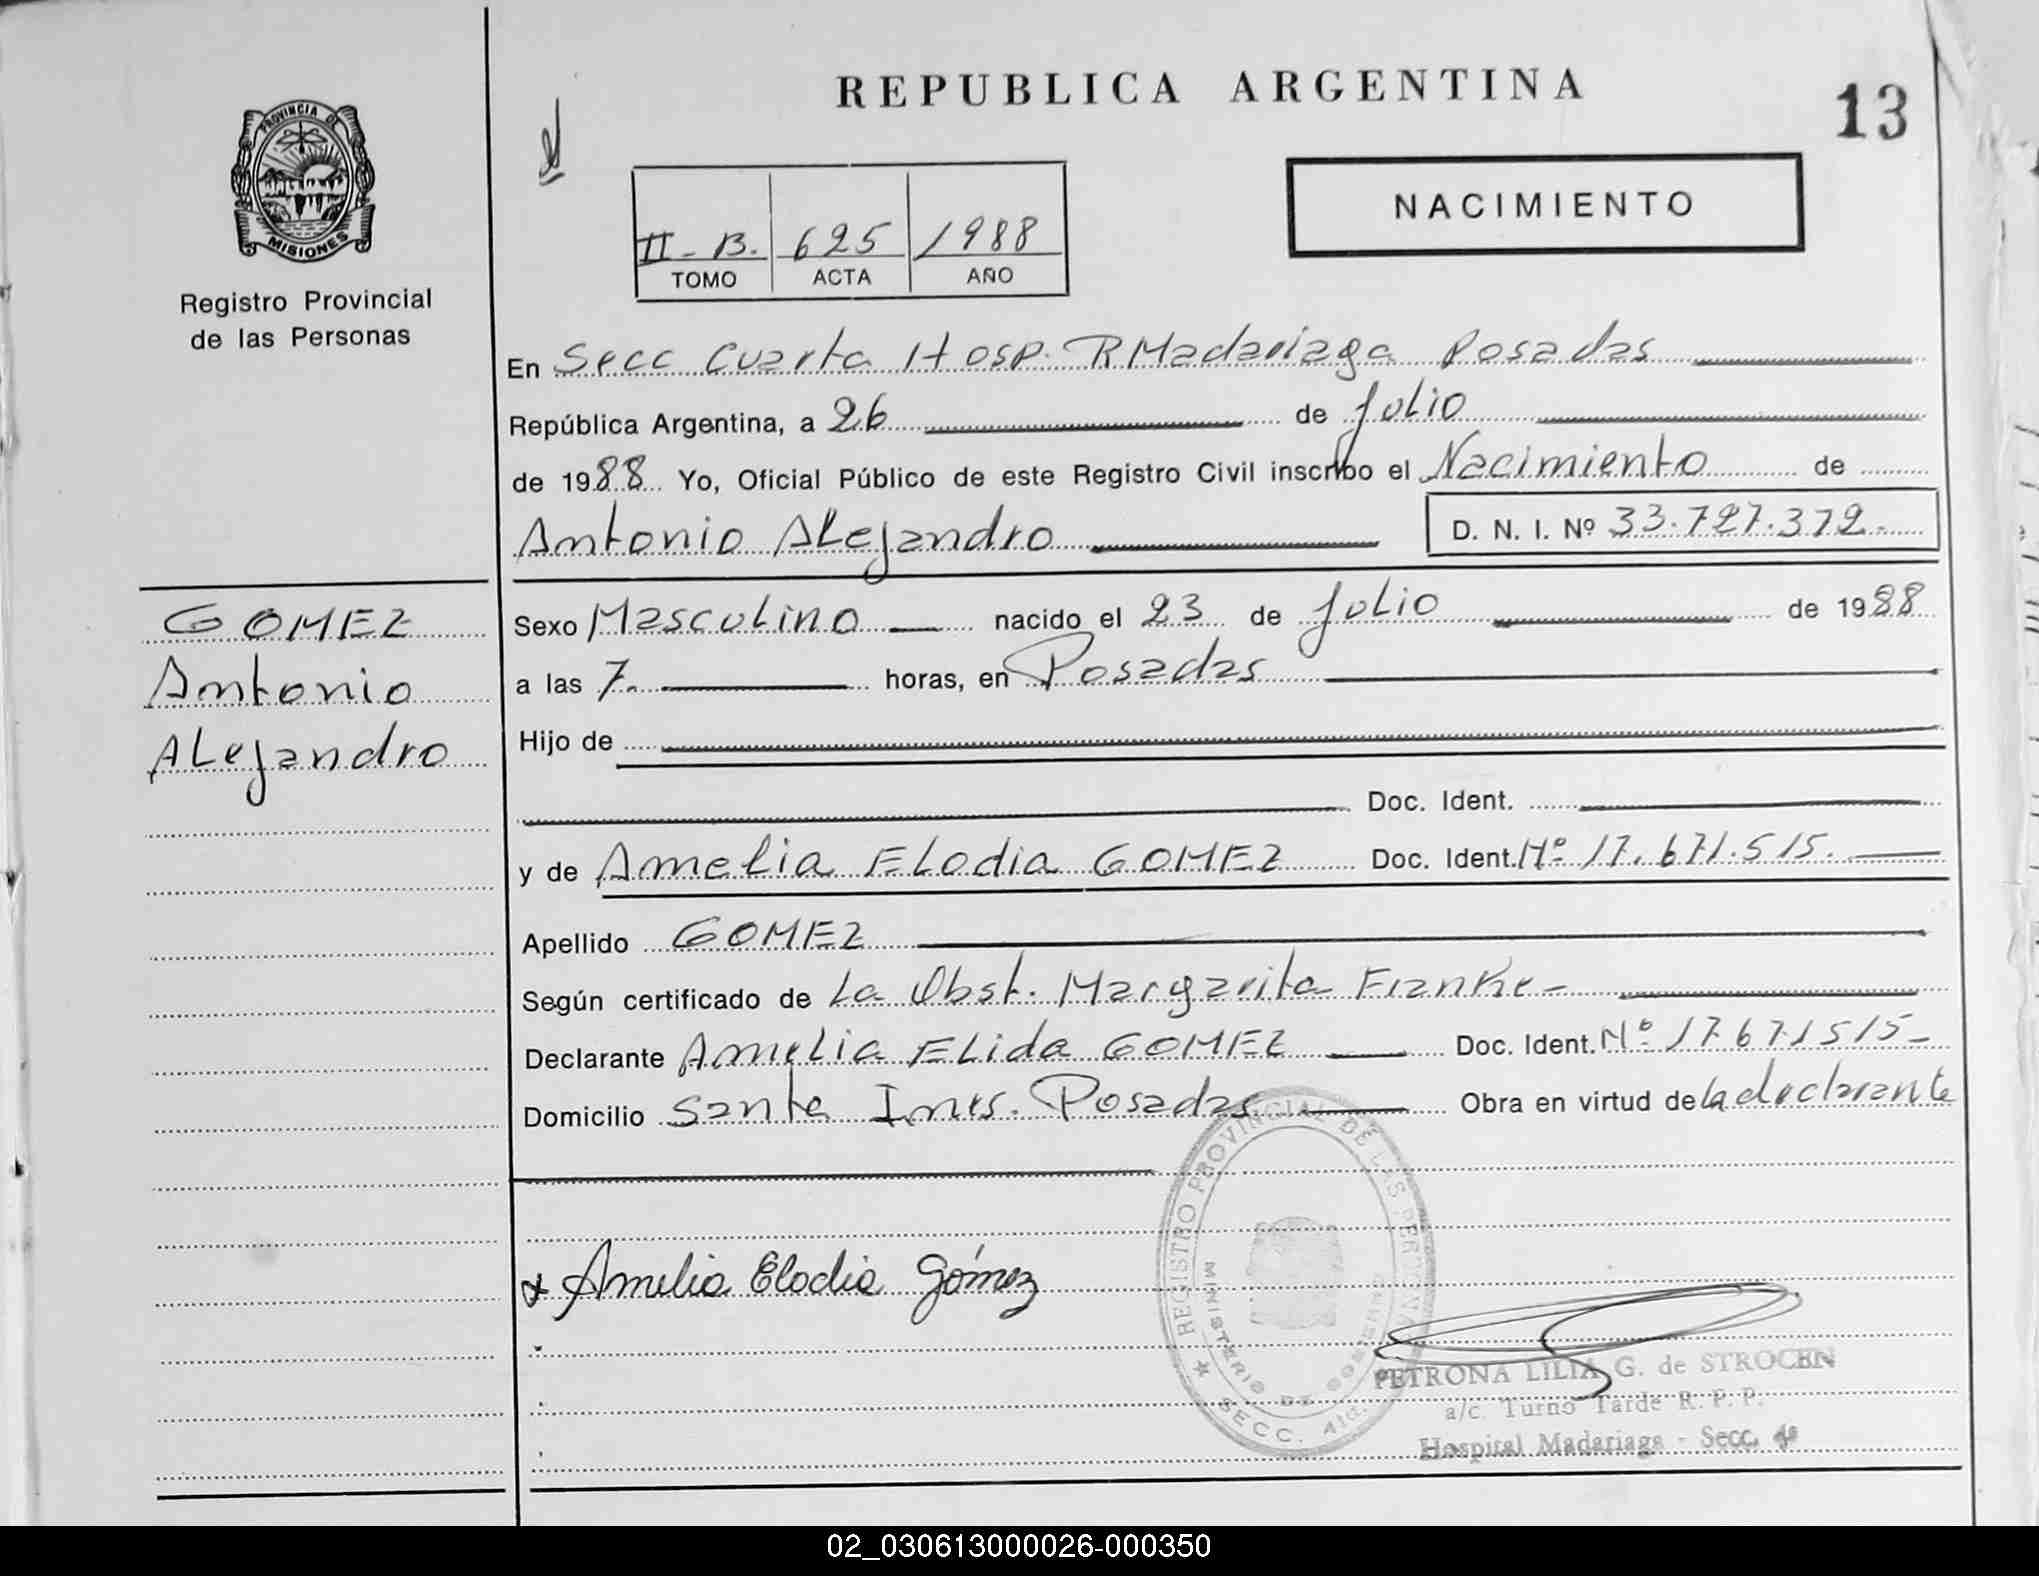 REPUBLICA ARGENTINA
13
PROVINCIA DE
MISIONES
Registro Provincial
de las Personas
NACIMIENTO
II-B. 625 1988
TOMO ACTA AÑO
En Secc Cuarta Hosp. R Madariaga Posadas
República Argentina, a 26 de Julio
de 1988 Yo, Oficial Público de este Registro Civil inscribo el Nacimiento de
Antonio Alejandro D. N. I. Nº 33.727.372-
GOMEZ
Antonio
Alejandro
Sexo Masculino nacido el 23 de Julio de 1988
a las 7. horas, en Posadas
Hijo de
Doc. Ident.
y de Amelia Elodia GOMEZ Doc. Ident. Nº 17.671.515.
Apellido GOMEZ
Según certificado de La Obst. Margarita Franke-
Declarante Amelia Elida GOMEZ Doc. Ident. Nº 17.671515-
Domicilio Santa Ines. Posadas Obra en virtud de la declarante
REGISTRO PROVINCIAL DE LAS PERSONAS
MINISTERIO DE GOBIERNO
SECC. 4ta.
x Amelia Elodia Gómez
PETRONA LILIA G. de STROCEN
a/c. Turno Tarde R. P. P.
Hospital Madariaga - Secc. 4ª
02_030613000026-000350